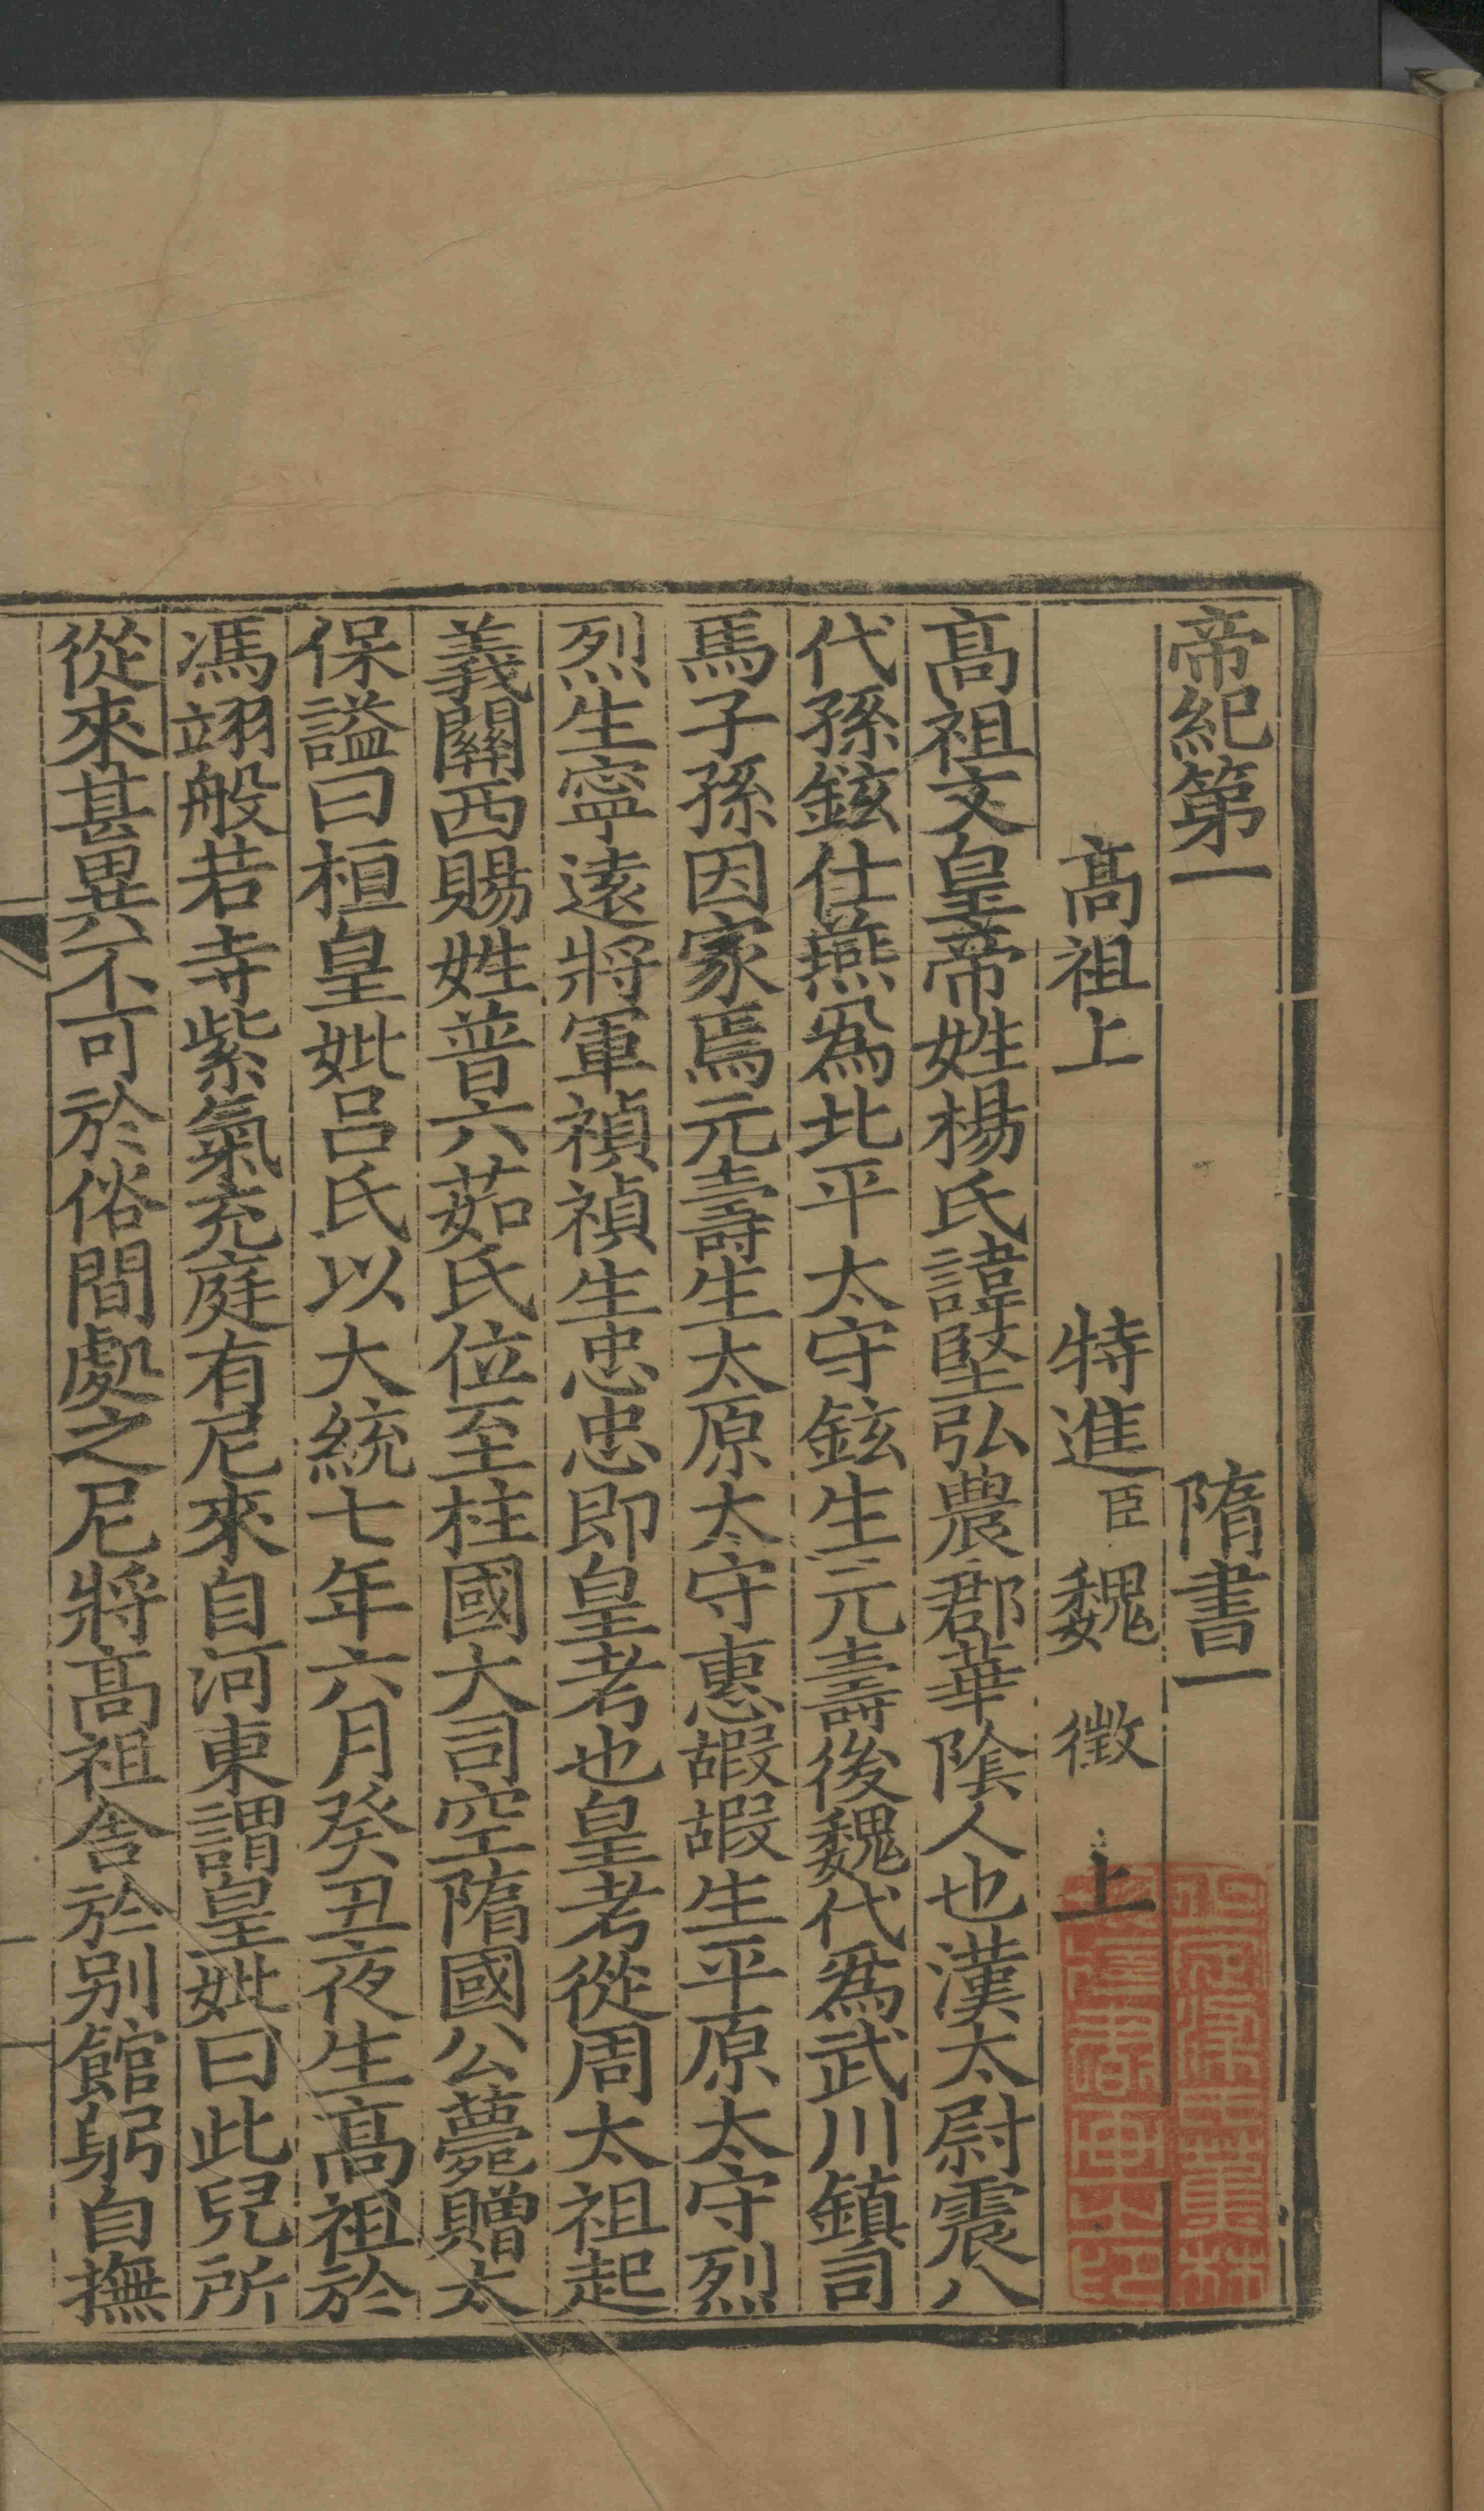 帝紀第一 隋書一
髙祖上 特進臣魏 徵 上
髙祖文皇帝姓楊氏諱堅弘農郡華陰人也漢太尉震八
代孫鉉仕燕爲北平太守鉉生元壽後魏代爲武川鎮司
馬子孫因家焉元壽生太原太守惠嘏嘏生平原太守烈
烈生寧遠將軍禎禎生忠忠即皇考也皇考從周太祖起
義關西賜姓普六茹氏位至柱國大司空隋國公薨贈太
保謚曰桓皇妣吕氏以大統七年六月癸丑夜生髙祖於
馮翊般若寺紫氣充庭有尼來自河東謂皇妣曰此兒所
從來甚異不可於俗間處之尼將髙祖舍於别館躬自撫